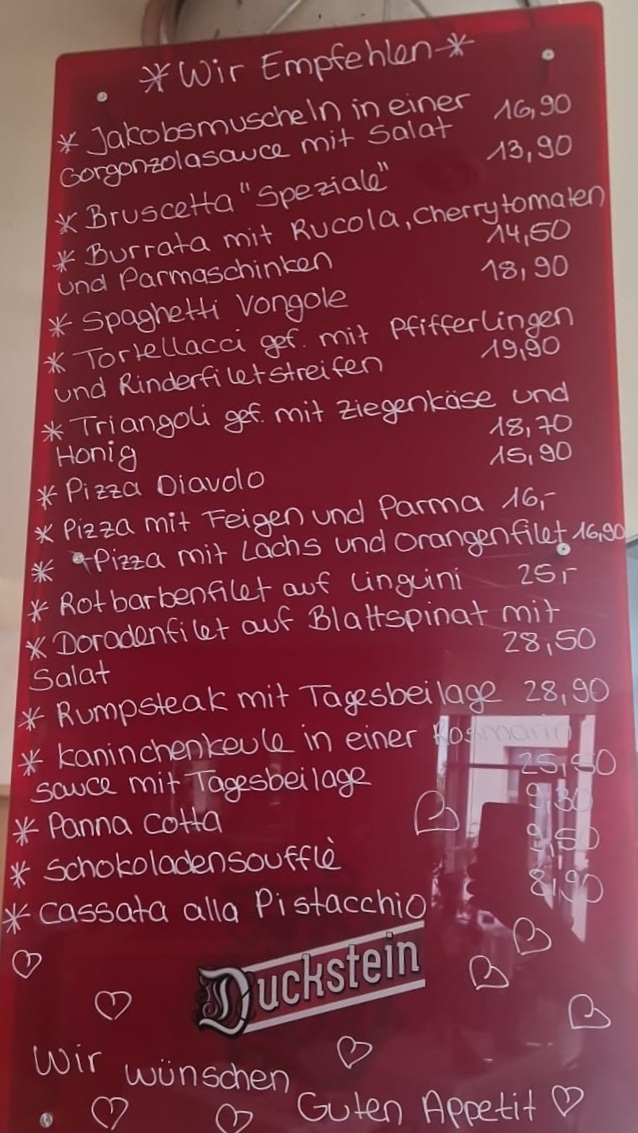 * Wir Empfehlen *
* Jakobsmuscheln in einer
Gorgonzolasauce mit Salat 16,90
* Bruscetta "Speziale" 13,90
* Burrata mit Rucola, Cherrytomaten
und Parmaschinken 14,50
* Spaghetti Vongole 18,90
* Tortellacci gef. mit Pfifferlingen
und Rinderfiletstreifen 19,90
* Triangoli gef. mit Ziegenkäse und
Honig 18,70
* Pizza Diavolo 15,90
* Pizza mit Feigen und Parma 16,-
* Pizza mit Lachs und Orangenfilet 16,90
* Rotbarbenfilet auf Linguini 25,-
* Doradenfilet auf Blattspinat mit
Salat 28,50
* Rumpsteak mit Tagesbeilage 28,90
* Kaninchenkeule in einer Rosmarin
sauce mit Tagesbeilage 25,50
* Panna Cotta 9,30
* Schokoladensoufflè 9,50
* Cassata alla Pistacchio 8,90
Duckstein
Wir wünschen
Guten Appetit